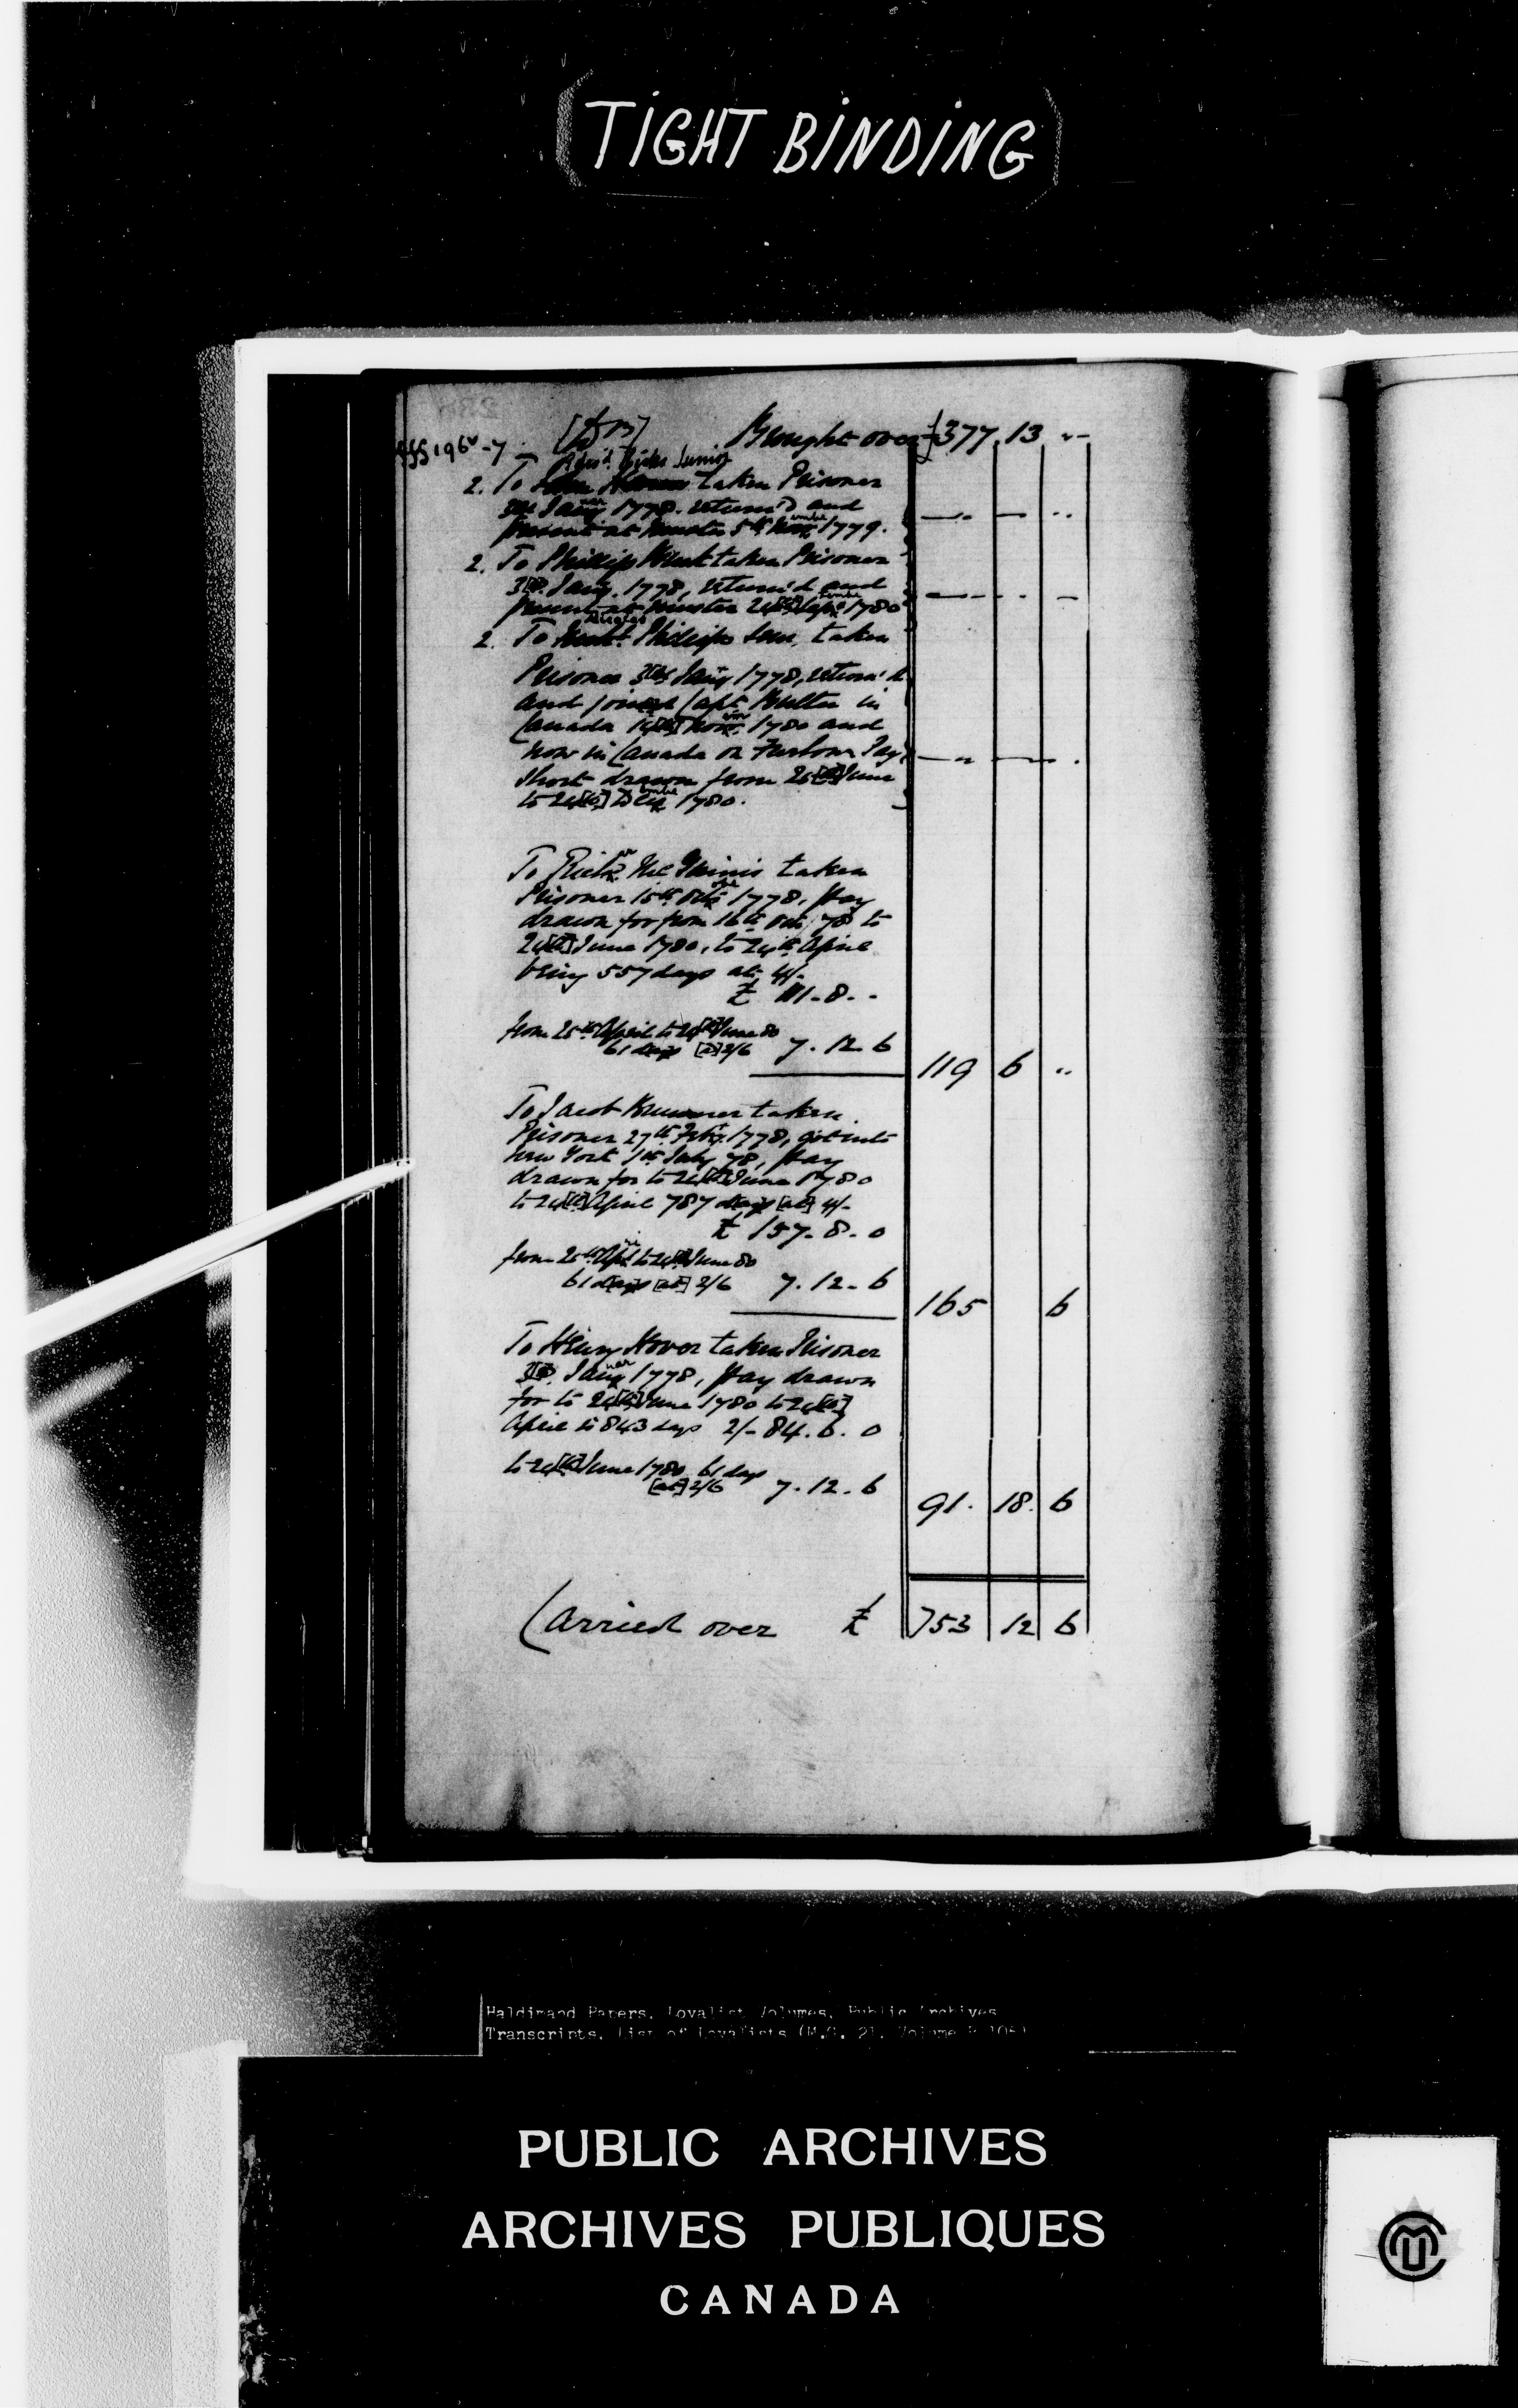 (TIGHT BINDING)
Brought over £377. 13 "-
2. To taken Prisoner
1778. return'd and
present at muster 5th 1779.
2. To Phillip taken Prisoner
3[d]. Jany. 1778, return'd and
present at muster 24[th] Sept 1780
2. To Phillips Senr. taken
Prisoner 3[d] Jany 1778, return'd
and joined Capt Butler in
Canada 1780 and
now in Canada on Furlow Pay
short drawn from 25[th] June
to 24[th] Decr 1780.
To Richd. McGinnis taken
Prisoner 15th Octr 1778, pay
drawn for from 16th Octr 78 to
24[th] June 1780, to 24th April
being 557 days at 4/-
£ 111-8--
from 25th April to 24[th] June 80
61 days [at] 2/6 7.12.6
119 6 "
To Jacob taken
Prisoner 27th Feby. 1778, got into
New York 1st July 78, pay
drawn for to 24[th] June 1780
to 24[th] April 787 days [at] 4/-
£ 157-8-0
from 25th Apl to 24[th] June 80
61 days [at] 2/6 7.12-6
165 6
To Henry Hover taken Prisoner
3[d]. Jany 1778, pay drawn
for to 24[th] June 1780 to 24[th]
April is 843 days 2/- 84.6.0
to 24[th] June 1780 61 days
[at] 2/6 7.12.6
91. 18. 6
Carried over £ 753 12 6
Haldimand Papers, Loyalist Volumes, Public Archives
Transcripts, List of Loyalists (M.G. 21, Volume B 105)
PUBLIC ARCHIVES
ARCHIVES PUBLIQUES
CANADA